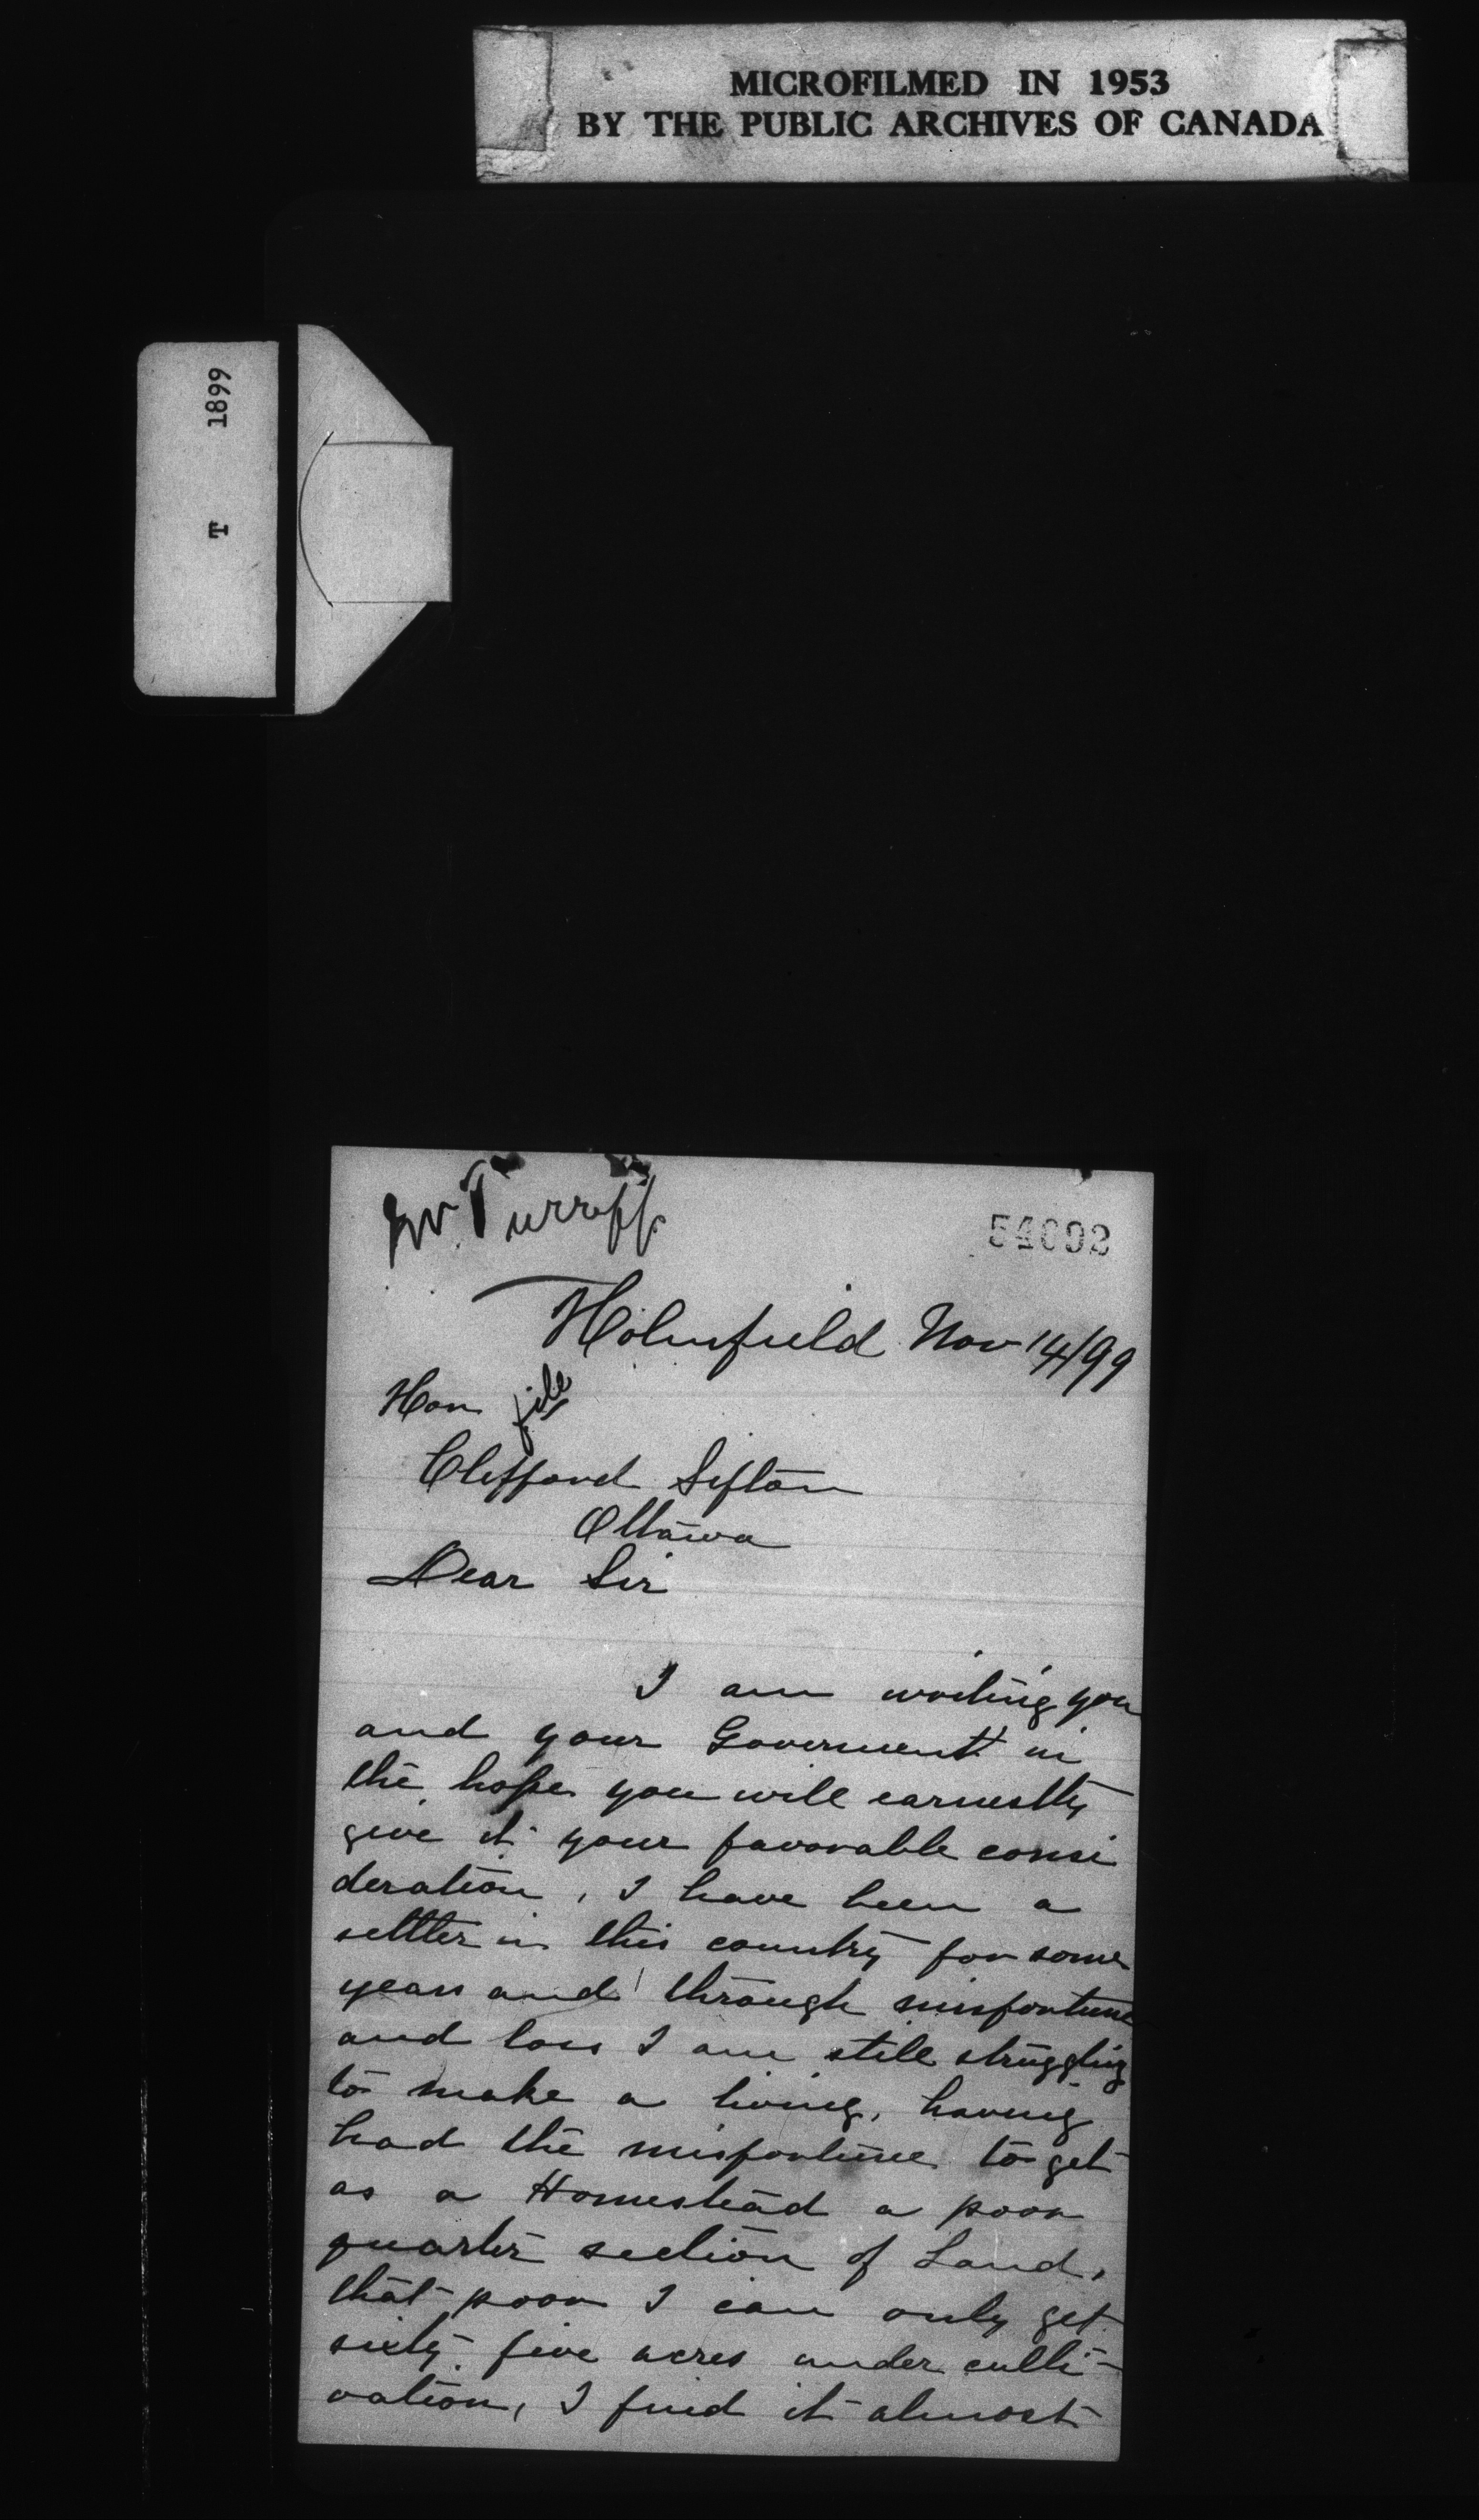 MICROFILMED IN 1953
BY THE PUBLIC ARCHIVES OF CANADA
T 1899
Mr Turriff
54092
Holmfield Nov 14/99
Hon
file
Clifford Sifton
Ottawa
Dear Sir
I am writing you
and your Government in
the hope you will earnestly
give it your favorable consi
deration, I have been a
settler in this country for some
years and through misfortune
and loss I am still struggling
to make a living, having
had the misfortune to get
as a Homestead a poor
quarter section of Land,
that poor I can only get
sixty five acres under culti-
vation, I find it almost